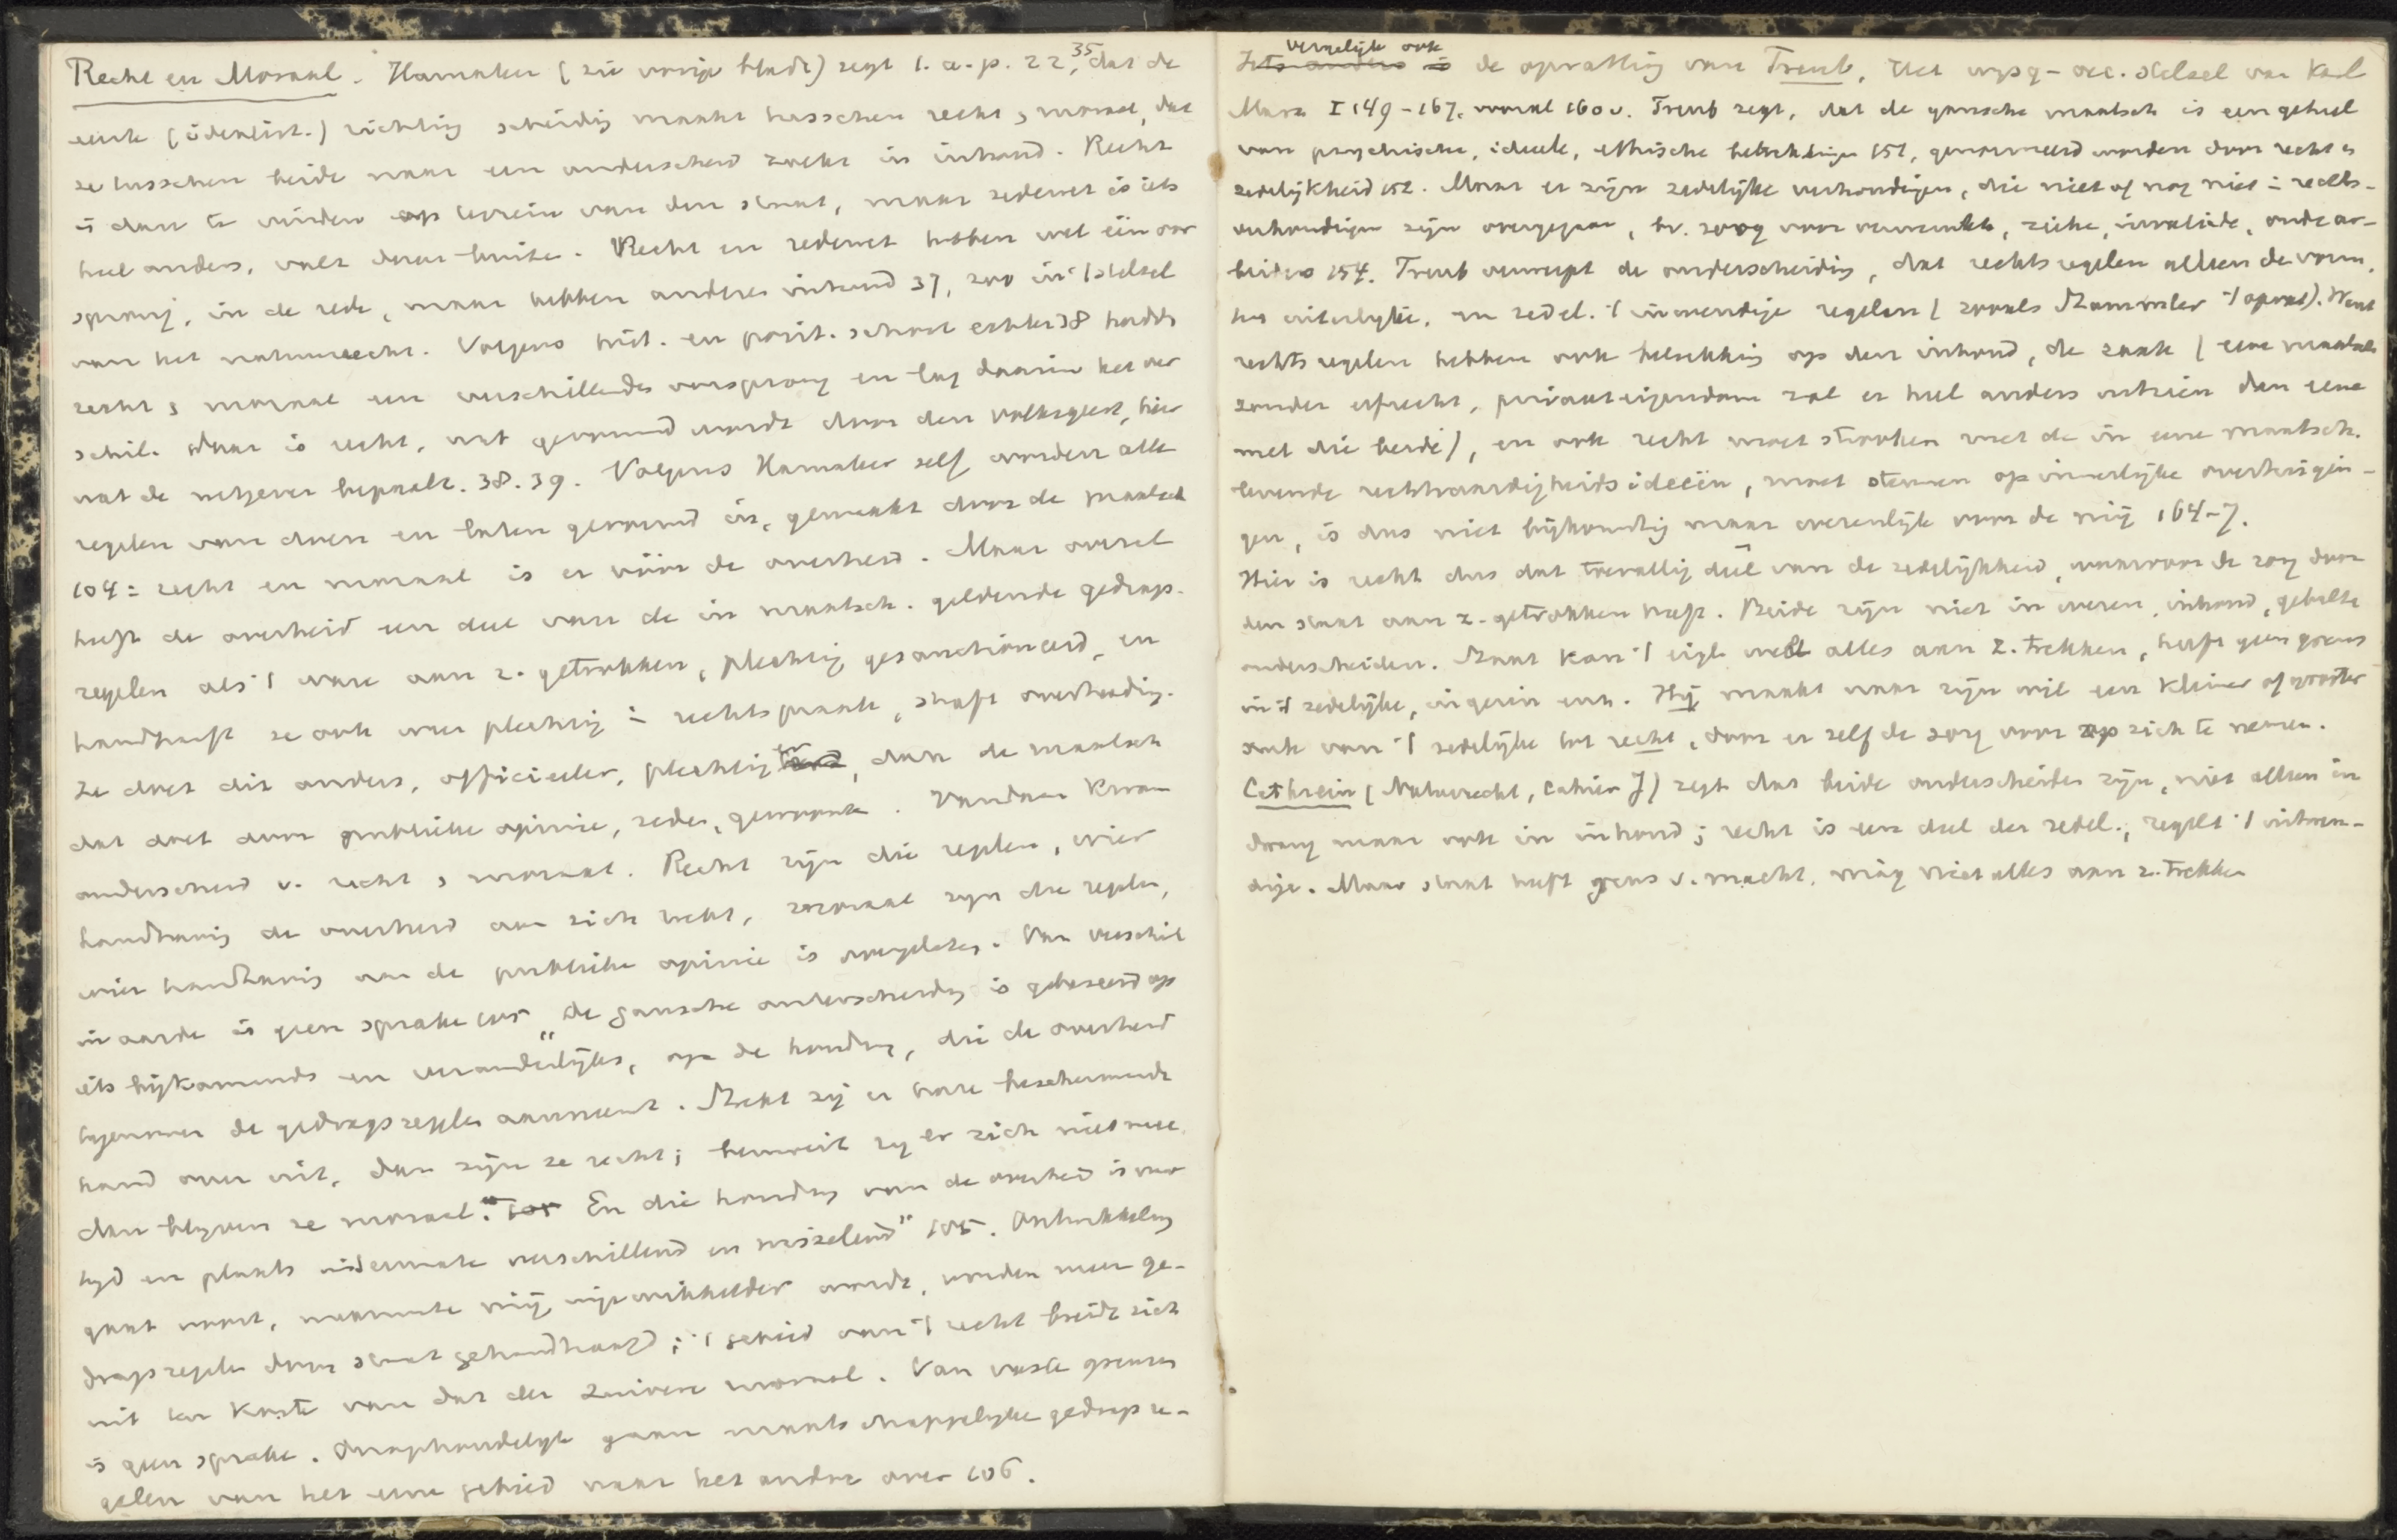 Recht en Moraal. Hamaker (zie vorige bladz) zegt l. a. p. 22, 35, dat de
eerste (idealist.) richting scheiding maakt tusschen recht & moraal, dat
ze tusschen beide naar een onderscheid zoekt in inhoud. Recht
is dan te vinden op terrein van den staat, maar zedewet is iets
heel anders, valt daar buiten. Recht en zedewet hebben wel één oor
sprong, in de rede, maar hebben anderen inhoud 37, zoo in 't stelsel
van het natuurrecht. Volgens hist. en posit. school echter 38 hadden
recht & moraal een verschillenden oorsprong en lag daarin het ver
schil. Daar is recht, wat gevormd wordt door den volksgeest, hier
wat de wetgever bepaalt. 38. 39. Volgens Hamaker zelf worden alle
regelen van doen en laten gevormd in, gemaakt door de maatsch
104: recht en moraal is er vóór de overheid. Maar overal
heeft de overheid een deel van de in maatsch. geldende gedrags-
regelen als 't ware aan z. getrokken, plechtig gesanctioneerd, en
handhaaft ze ook weer plechtig in rechtspraak, straft overtreding.
Ze doet dit anders, officieeler, plechtiger, dan de maatsch
dat doet door publieke opinie, zeden, gewoonte. Vandaar kwam
onderscheid v. recht & moraal. Recht zijn die regelen, wier
handhaving de overheid aan zich trekt, moraal zijn die regelen,
wier handhaving aan de publieke opinie is overgelaten. Van verschil
in aard is geen sprake 105 "de gansche onderscheiding is gebaseerd op
iets bijkomends en veranderlijks, op de houding, die de overheid
tegenover de gedragsregelen aanneemt. Strekt zij er hare beschermende
hand over uit, dan zijn ze recht; bemoeit zij er zich niet mee,
dan blijven ze moraal. En die houding van de overheid is naar
tijd en plaats uitermate verschillend en wisselend" 105. Ontwikkeling
gaat voort, naarmate mij ingewikkelder wordt, worden meer ge-
dragsregelen door staat gehandhaafd; 't gebied van 't recht breidt zich
uit ten koste van dat der zuivere moraal. Van vaste grenzen
is geen sprake. Onophoudelijk gaan maatschappelijke gedragsre-
gelen van het eene gebied naar het andere over 106.
Vergelijk ook de opvatting van Treub, Het wijsg-oec. stelsel van Karl
Marx I 149-167. vooral 160 v. Treub zegt, dat de gansche maatsch is een geheel
van psychische, ideeele, ethische betrekkingen 151, genormeerd worden door recht en
zedelijkheid 152. Maar er zijn zedelijke verhoudingen, die niet of nog niet in rechts-
verhoudingen zijn overgegaan, bv. zorg voor verwaarl., zieke, invalide, oude ar-
beiders 154. Treub verwerpt de onderscheiding, dat rechtsregelen alleen de vorm,
het uiterlijke, en zedel. 't inwendige regelen (zooals Stammler 't opvat). Want
rechtsregelen hebben ook betrekking op den inhoud, de zaak (eene maatsch
zonder erfrecht, privaateigendom zal er heel anders uitzien dan eene
met die beide), en ook recht moet strooken met de in eene maatsch.
levende rechtvaardigheidsideeën, moet steunen op innerlijke overtuigin-
gen, is dus niet bijkomstig maar wezenlijk voor de mij 164-7.
Hier is recht dus dat toevallig deel van de zedelijkheid, waarvoor de zorg door
den staat aan z. getrokken heeft. Beide zijn niet in wezen, inhoud, gehalte
onderscheiden. Staat kan 't eigl wel alles aan z. trekken, heeft geen grens
in 't zedelijke, in gezin enz. Hij maakt naar zijn wil een kleiner of grooter
stuk van 't zedelijke tot recht, door er zelf de zorg voor op zich te nemen.
Cathrein (Natuurrecht, Cahier J) zegt dat beide onderscheiden zijn, niet alleen in
dwang maar ook in inhoud; recht is een deel der zedel., regelt 't uitwen-
dige. Maar staat heeft grens v. macht, mag niet alles aan z. trekken